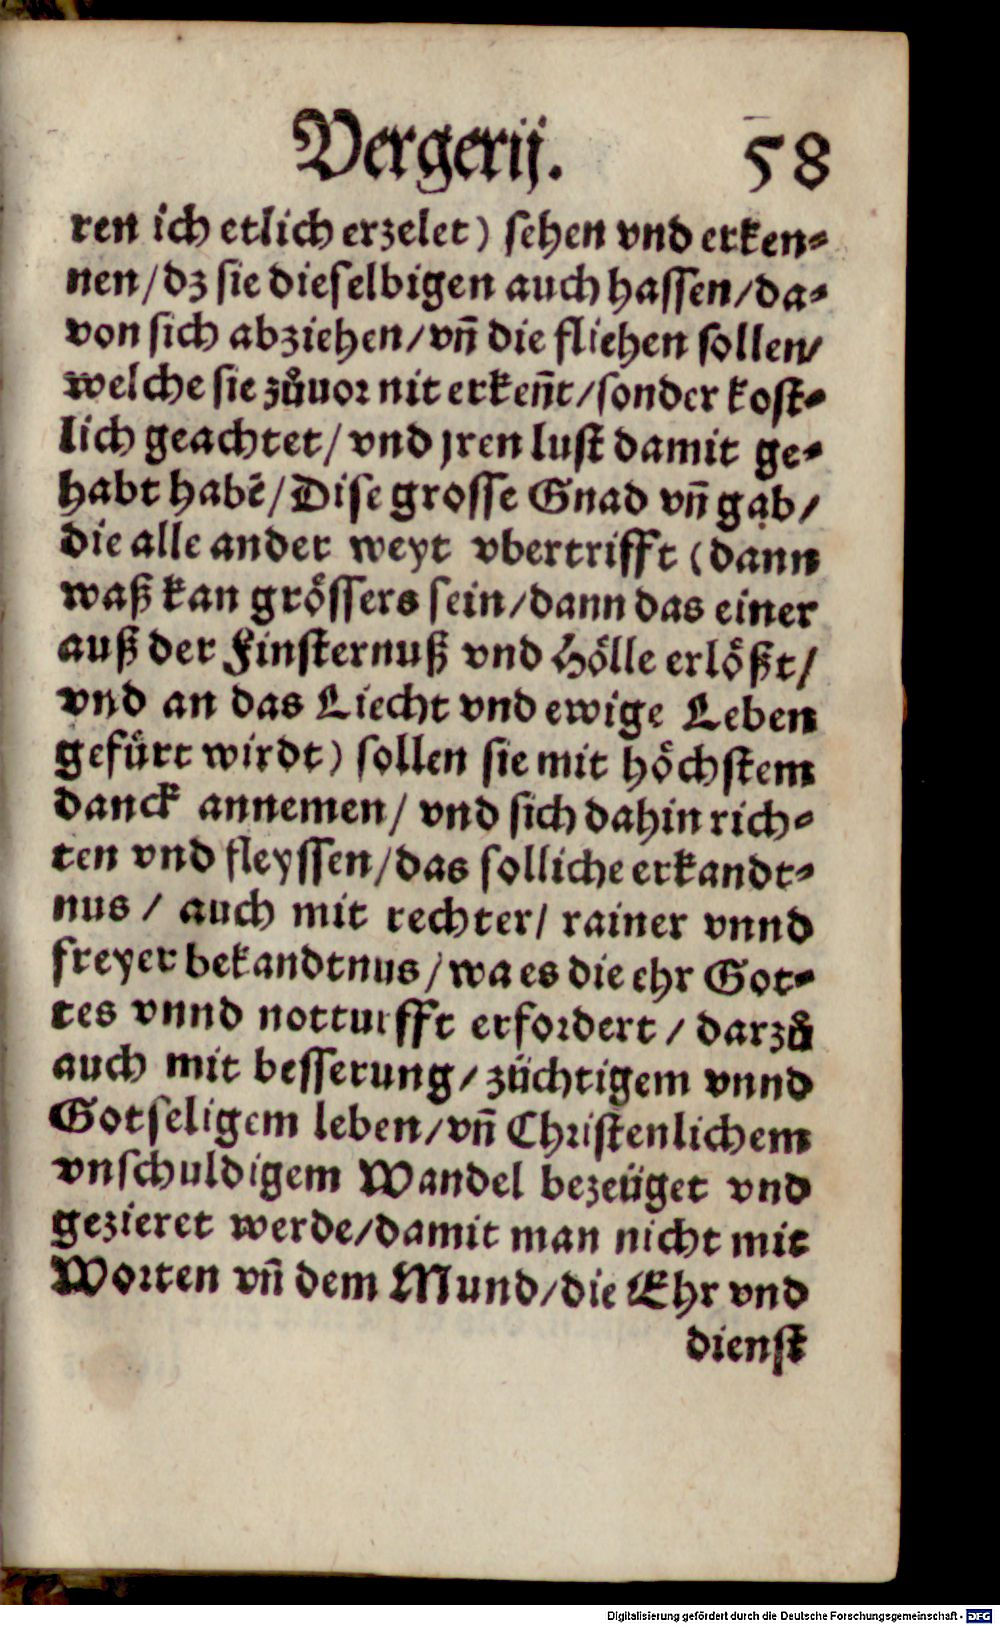 Vergerij. 58
ren ich etlich erzelet) sehen vnd erken-
nen/dz sie dieselbigen auch hassen/da-
von sich abziehen/vn̄ die fliehen sollen/
welche sie zůuor nit erken̄t/sonder kost-
lich geachtet/ vnd jren lust damit ge-
habt habē/Dise grosse Gnad vn̄ gab/
die alle ander weyt vbertrifft (dann
waß kan grössers sein/dann das einer
auß der Finsternuß vnd Hölle erlößt/
vnd an das Liecht vnd ewige Leben
gefürt wirdt) sollen sie mit höchstem
danck annemen/ vnd sich dahin rich-
ten vnd fleyssen/das solliche erkandt-
nus / auch mit rechter/ rainer vnnd
freyer bekandtnus/wa es die ehr Got-
tes vnnd notturfft erfordert / darzů
auch mit besserung/züchtigem vnnd
Gotseligem leben/vn̄ Christenlichem
vnschuldigem Wandel bezeüget vnd
gezieret werde/damit man nicht mit
Worten vn̄ dem Mund/die Ehr vnd
dienst
Digitalisierung gefördert durch die Deutsche Forschungsgemeinschaft - DFG